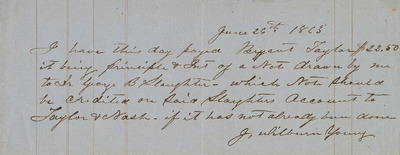 June 26th 1863
I have this day payed Bryant Taylor $22.50
it being principle & Int of a Note drawn by me
to Geo B Slaughter - which Note should
be credited on Said Slaughters Account to
Taylor & Nash - if it has not already been done
J. Wilburn Young